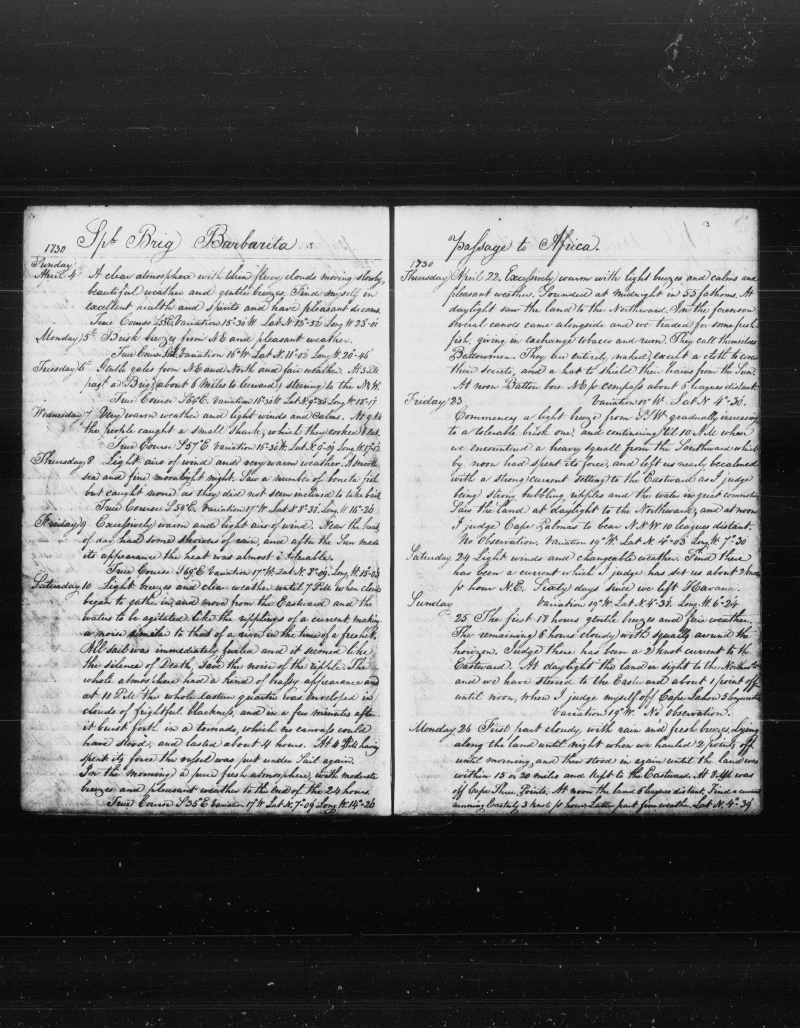 Spb Brig Barbarita. 3
1730
Sunday
April 4th A clear atmosphere with thin fleecy clouds moving slowly,
beautiful weather and gentle breezes. Find myself in
excellent health and spirits and have pleasant dreams.
True Course Variation 15-30 W. Lat N. 12-52 Long W. 23-01
Monday 5th Brisk breezes from NE and pleasant weather.
True Course Variation 16° W Lat N. 11-00 Long W. 20-46
Tuesday 6th Gentle gales from NE and North and fair weather. At 3
past a Brig about 6 Miles to leeward, steering to the NW.
True Course S 67° E. Variation 16-30 W. Lat N. 9-55 Long W. 18-17
Wednesday 7 Very warm weather and light winds and Calms. At 9 AM
the people caught a small Shark, which they cooked & eat.
True Course S 57° E Variation 16-30 W. Lat N. 9-09 Long W. 17-13
Thursday 8 Light airs of wind and very warm weather. A smooth
sea and fine moonlight night. Saw a number of boneta fish
but caught none as they did not seem inclined to take bait
True Course S 58° E. Variation 17° W Lat N 8-31. Long W 16-20
Friday 9 Excessively warm and light airs of wind. Near the break
of day had some showers of rain, and after the Sun made
its appearance the heat was almost intolerable.
True Course S 69° E Variation 17° W. Lat N. 8-09. Long W. 15-03
Saturday 10 Light breezes and clear weather until 7 PM when clouds
began to gather in and move from the Eastward and the
waters to be agitated like the ripplings of a current, making
a noise similar to that of a river in the time of a freshet.
All sail was immediately furled and it seemed like
the silence of Death, save the noise of the ripple. The
whole atmosphere had a kind of brassy appearance and
at 11 PM the whole Eastern quarter was enveloped in
clouds of frightful blackness, and in a few minutes after
it burst forth in a tornado, which no canvass could
have stood, and lasted about 4 hours. At 4 having
spent its force the vessel was put under Sail again.
In the morning a pure fresh atmosphere, with moderate
breezes and pleasant weather to the end of the 24 hours.
True Course S 35° E Variation 17° W. Lat N. 7-09 Long W. 14-20
Passage to Africa.
1730
Thursday April 22. Excessively warm with light breezes and calms and
pleasant weather. Sounded at midnight in 55 fathoms. At
daylight saw the land to the Northward. In the forenoon
several canoes came alongside and we traded for some fresh
fish, giving in exchange tobacco and rum. They call themselves
Battowmen. They are entirely naked, except a cloth to cover
their secrets, and a hat to shield their brains from the Sun.
At noon Batton bore NE pr compass about 6 leagues distant.
Variation 19° W. Lat N 4-36.
Friday 23
Commences a light breeze from SW gradually increasing
to a tolerable brisk one, and continuing til 10 AM when
we encountered a heavy squall from the Southward which
by noon had spent its force, and left us nearly becalmed
with a strong current setting to the Eastward as I judge
being strong bubbling ripples and the water in great commotion
Saw the land at daylight to the Northward, and at noon
I judge Cape Palmas to bear NNW 10 leagues distant.
No Observation. Variation 19° W Lat N. 4-03 Long W. 7-30
Saturday 24 Light winds and changeable weather. Find there
has been a current which I judge has set us about 2 knots
pr hour N.E. Sixty days since we left Havana.
Variation 19° W Lat N. 4-31. Long W. 6-24
Sunday
25 The first 18 hours gentle breezes and fair weather.
The remaining 6 hours cloudy with squally around the
horizon. Judge there has been a 2 knot current to the
Eastward. At daylight the land in sight to the Northward
and we have steered to the Eastward about 1 point off
until noon, when I judge myself off Cape Lahou 5 leagues dist
Variation 19° W. No Observation.
Monday 26 First part cloudy with rain and fresh breezes, laying
along the land until night when we hauled 2 points off
until morning, and then stood in again until the land was
within 15 or 20 miles and kept to the Eastward. At 8 AM was
off Cape Three Points. At noon the land 6 leagues distant. Find a current
running Easterly 3 knots pr hour. Latter part fine weather. Lat N. 4-39